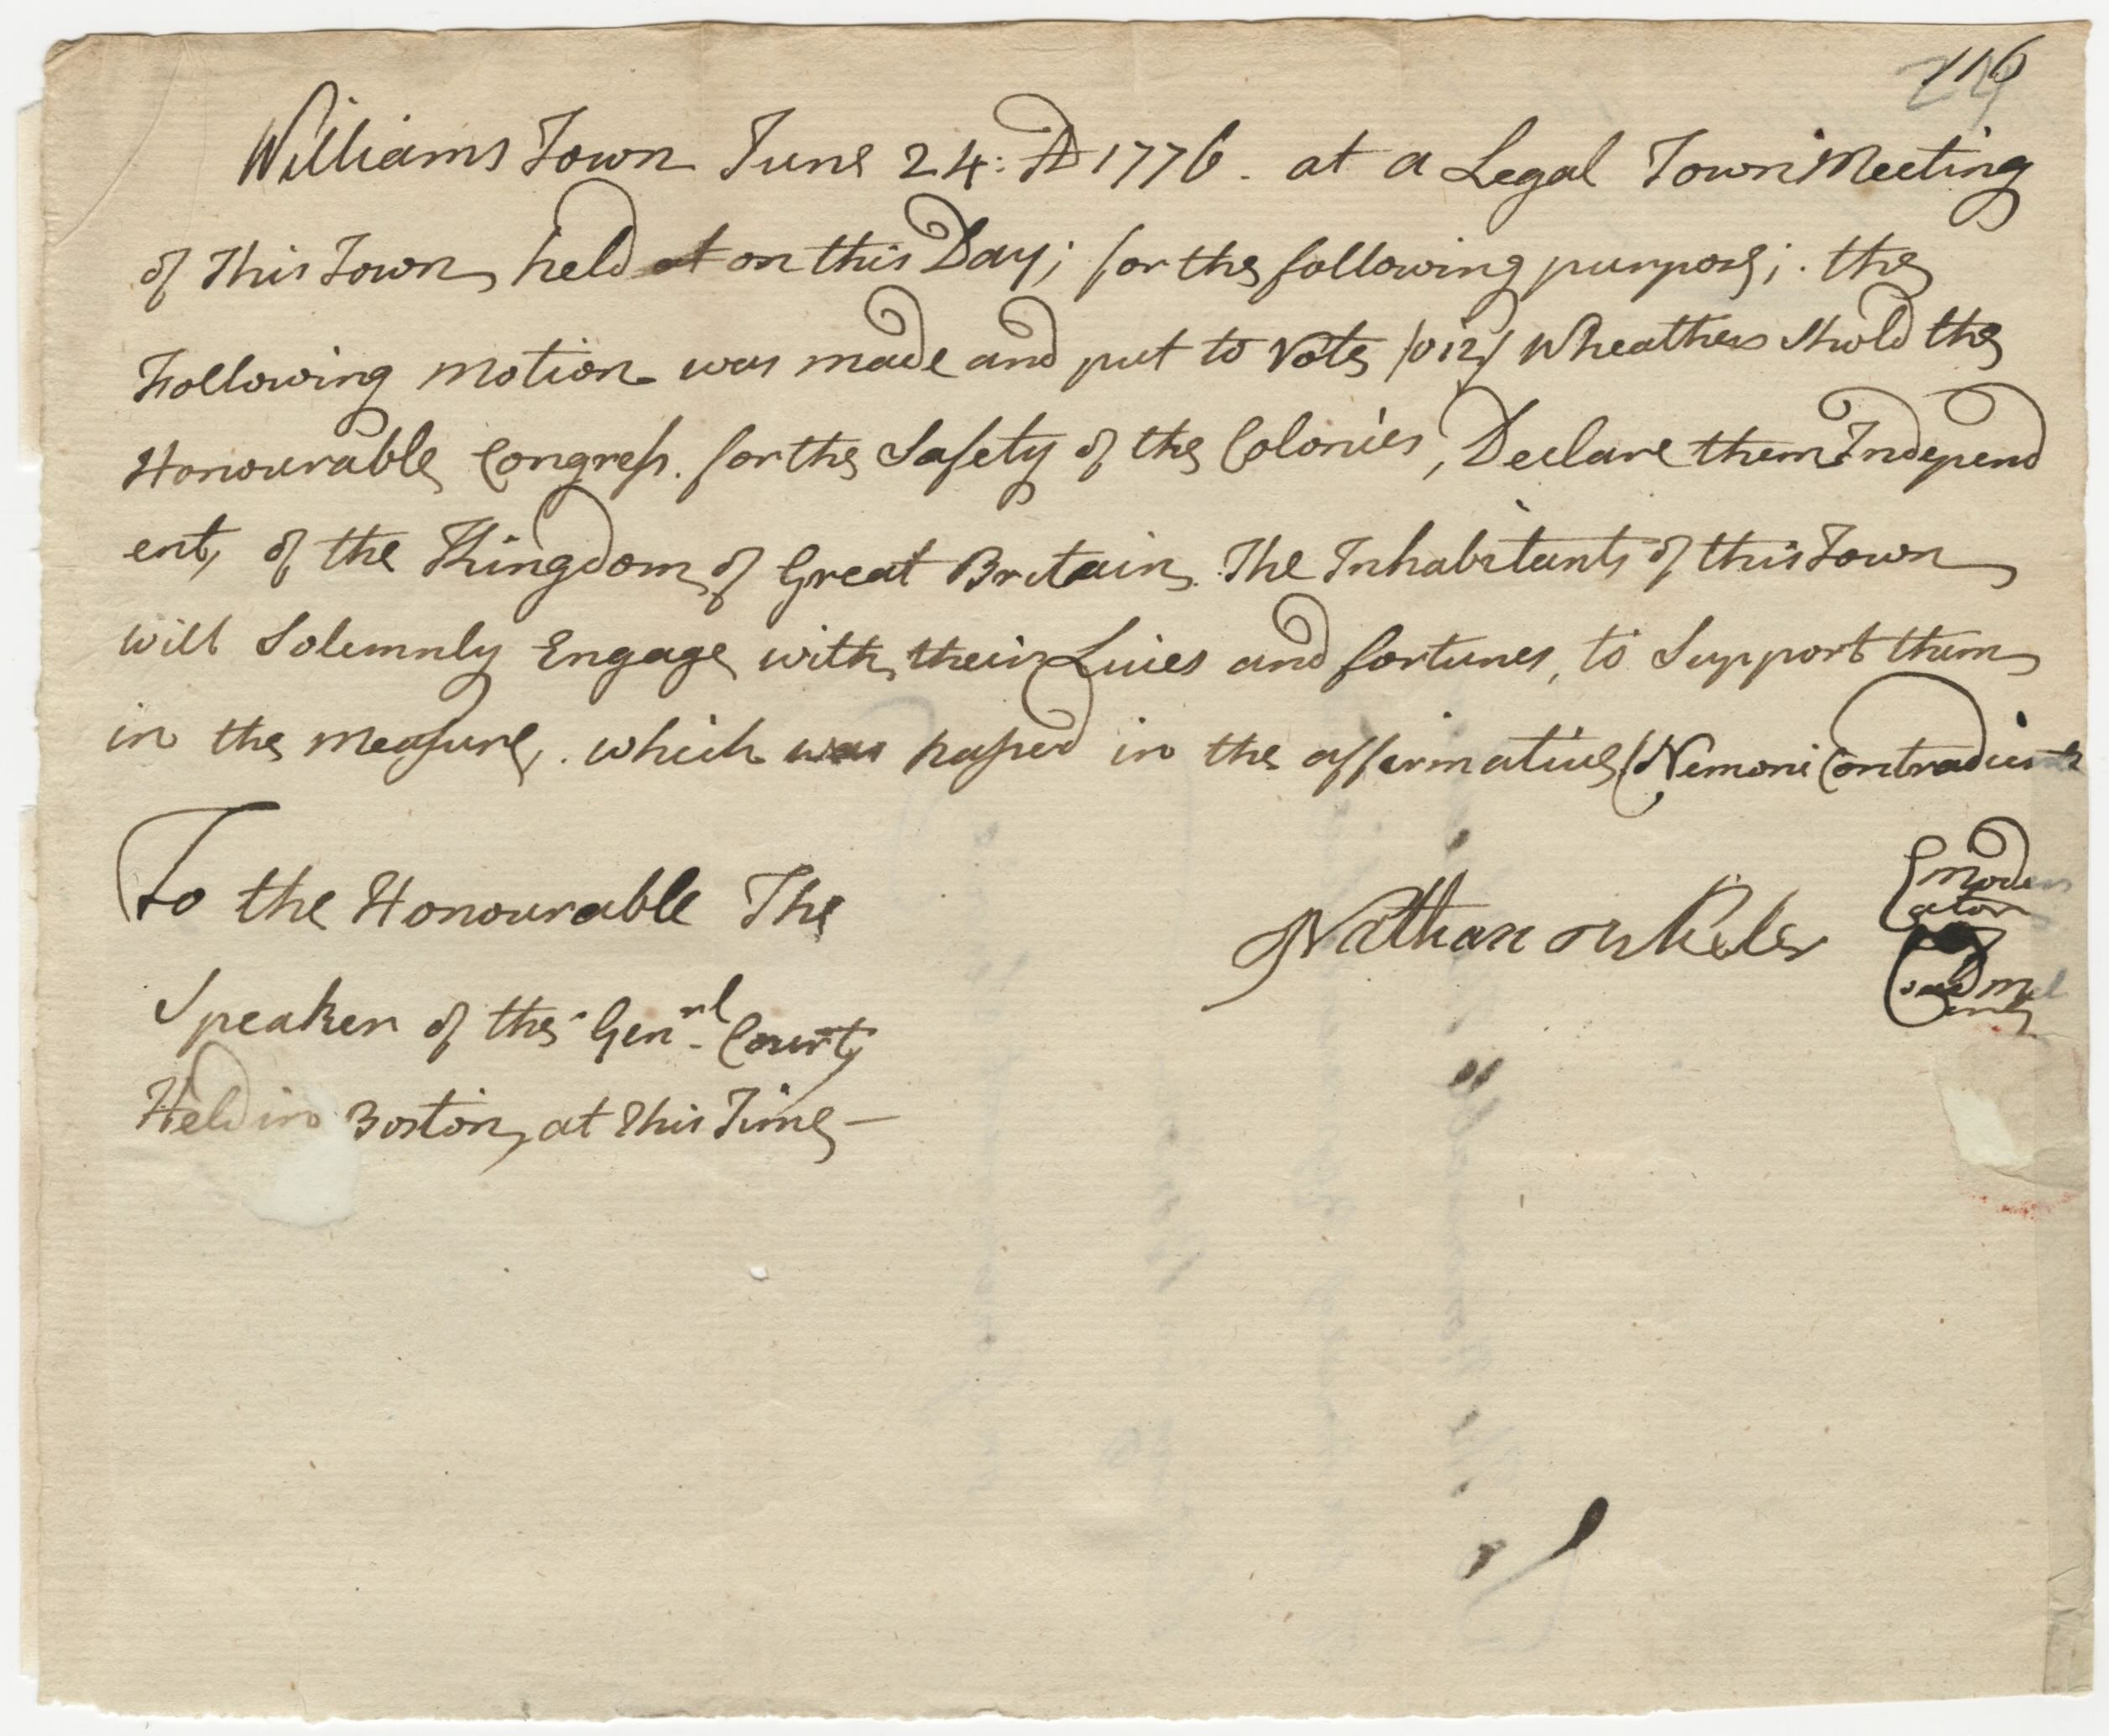 116
Williams Town June 24: AD 1776. at a Legal Town Meeting
of This Town held at on this Day; for the following purpose; the
Following motion was made and put to Vote /viz/ Wheather Shold the
Honourable Congress. for the Safety of the Colonies, Declare them Independ
ent, of the Kingdom of Great Britain. The Inhabitants of this Town
will Solemnly Engage with their Lives and fortunes, to Support them
in the Measure, which was passed in the affirmative (Nemoni Contradicente
To the Honourable The
Speaker of the Genrl Court
Held in Boston, at This Time—
Nathan Wheeler
Moder
ator
said m